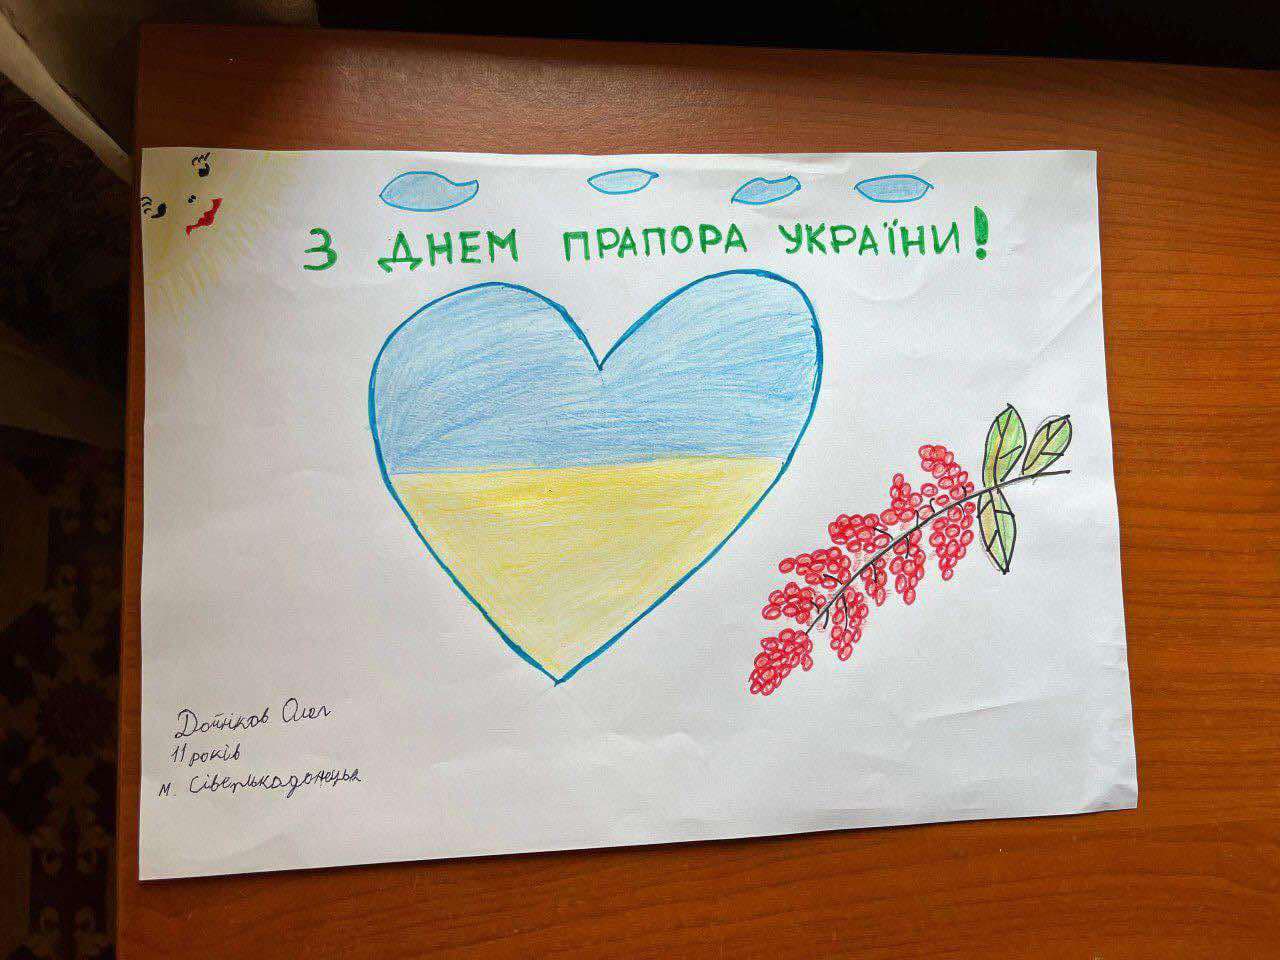 З ДНЕМ ПРАПОРА УКРАЇНИ!
Дойніков Олег
11 років
м. Сівєрлькадонецьк